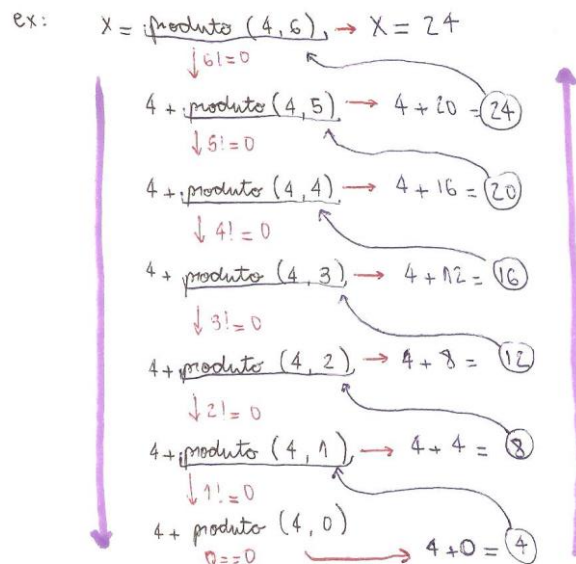 ex: X = produto (4,6) → X = 24
↓ 6!=0
4 + produto (4,5) → 4 + 20 = 24
↓ 5!=0
4 + produto (4,4) → 4 + 16 = 20
↓ 4!=0
4 + produto (4,3) → 4 + 12 = 16
↓ 3!=0
4 + produto (4,2) → 4 + 8 = 12
↓ 2!=0
4 + produto (4,1) → 4 + 4 = 8
↓ 1!=0
4 + produto (4,0)
0==0 → 4+0 = 4